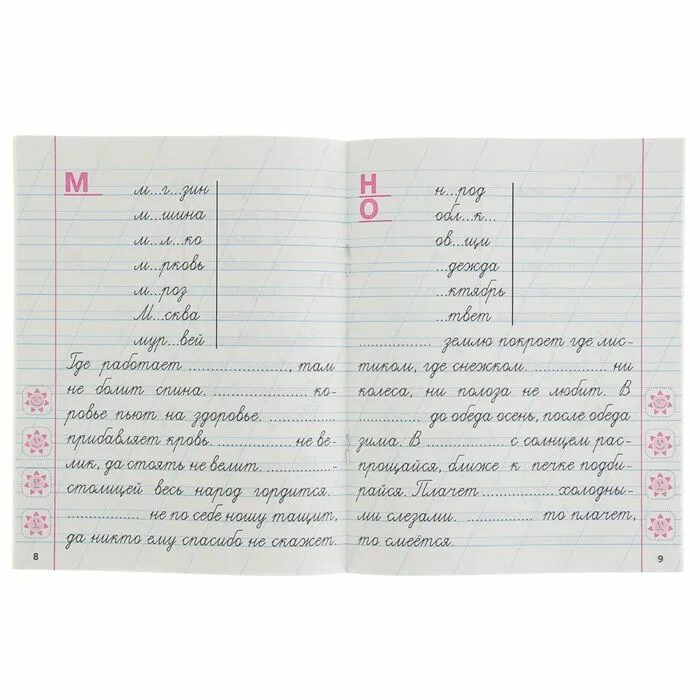 М
м...г...зин
м...шина
м...л...ко
м...рковь
м...роз
М...сква
мур...вей
Где работает ..................., там
не болит спина. ................... ко-
ровье пьют на здоровье. ...................
прибавляет кровь. ................... не ве-
лик, да стоять не велит. ...................-
столицей весь народ гордится.
................... не по себе ношу тащит,
да никто ему спасибо не скажет.
8
Н
О
н...род
обл...к...
ов...щи
...дежда
...ктябрь
...твет
................... землю покроет где лис-
тиком, где снежком. ................... ни
колеса, ни полоза не любит. В
................... до обеда осень, после обеда
зима. В ................... с солнцем рас-
прощайся, ближе к печке подби-
райся. Плачет ................... холодны-
ми слезами. ................... то плачет,
то смеётся.
9